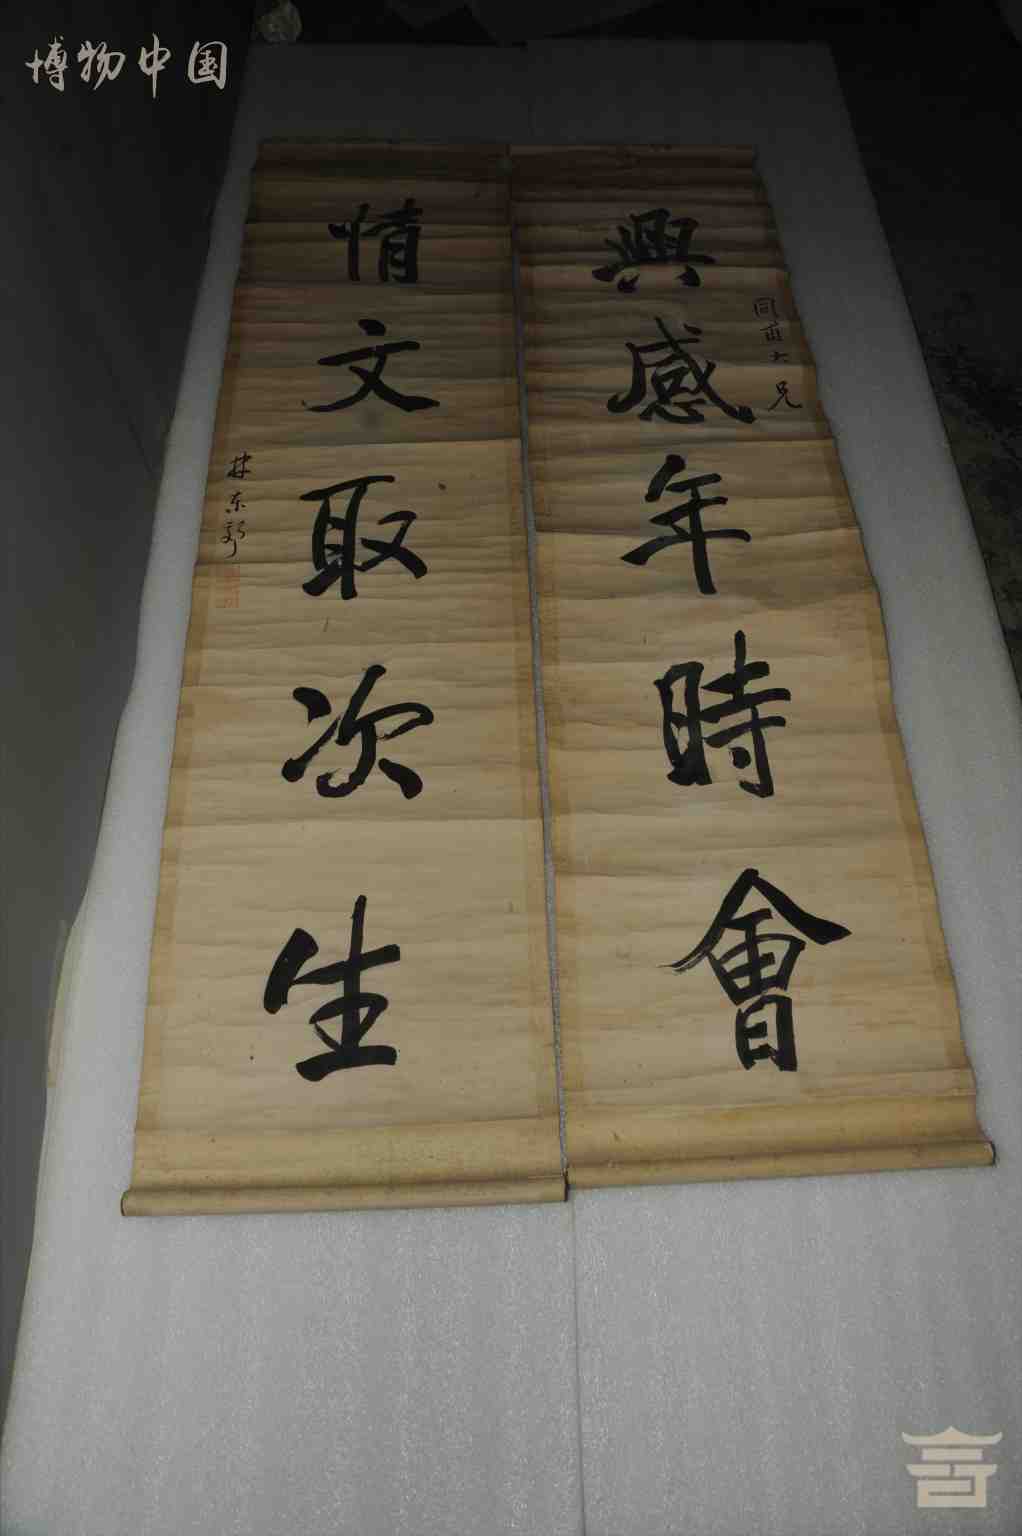 博物中国
興感年時會
同甫大兄
情文取次生
林東郊